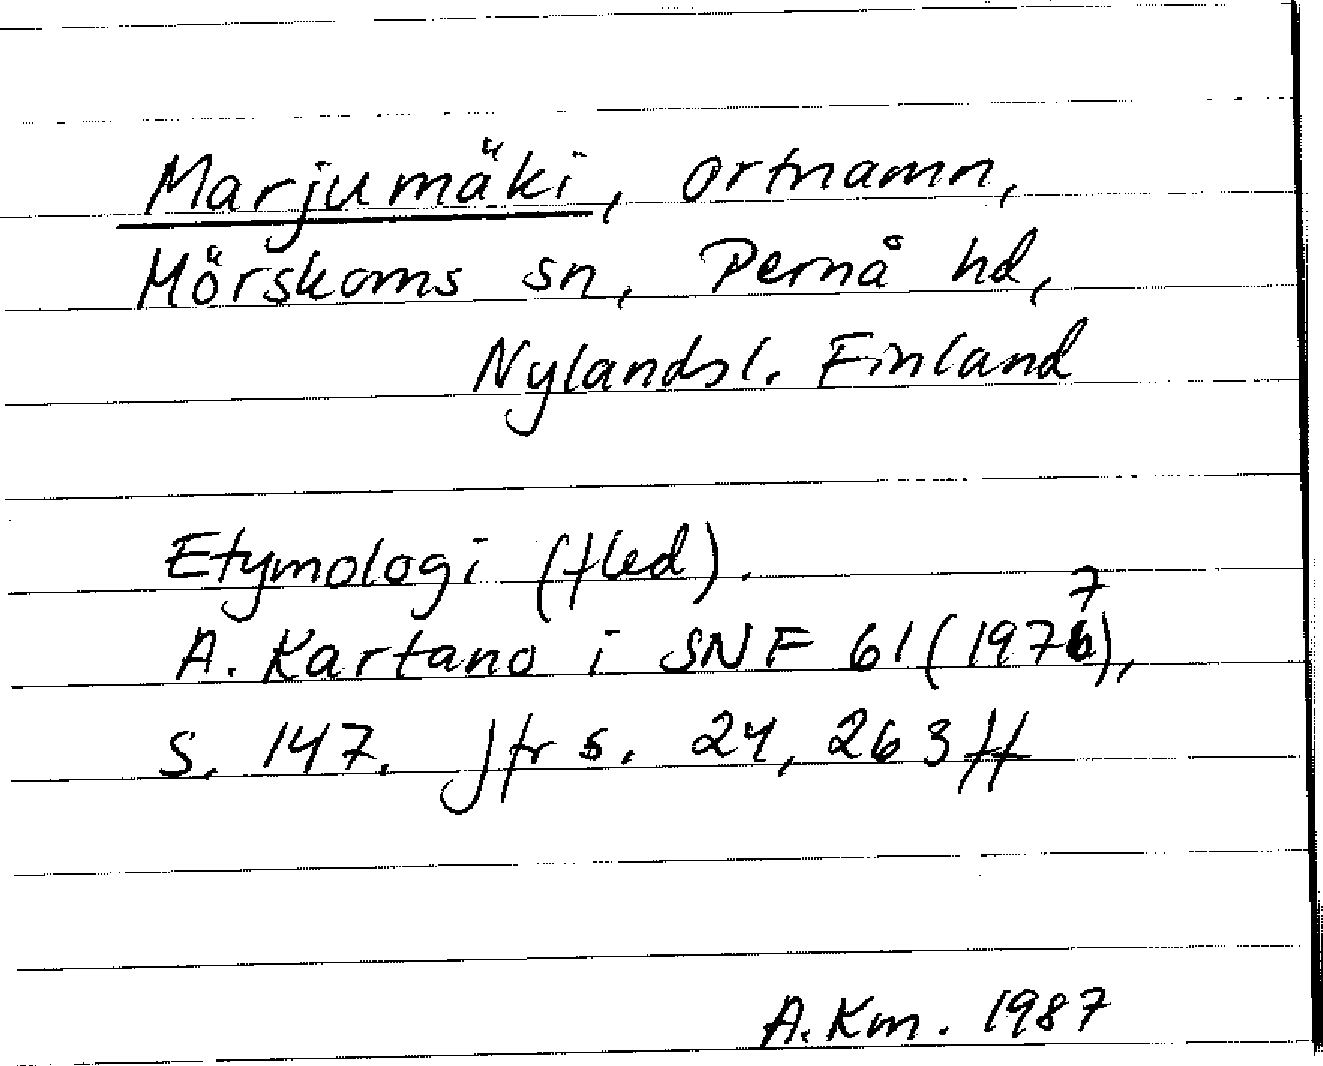 Marjumäki, ortnamn,
Mörskoms sn, Pernå hd,
Nylandsl. Finland
Etymologi (fled).
A. Kartano i SNF 61 (1977),
S. 147. Jfr s. 24, 263 ff
A. Km. 1987